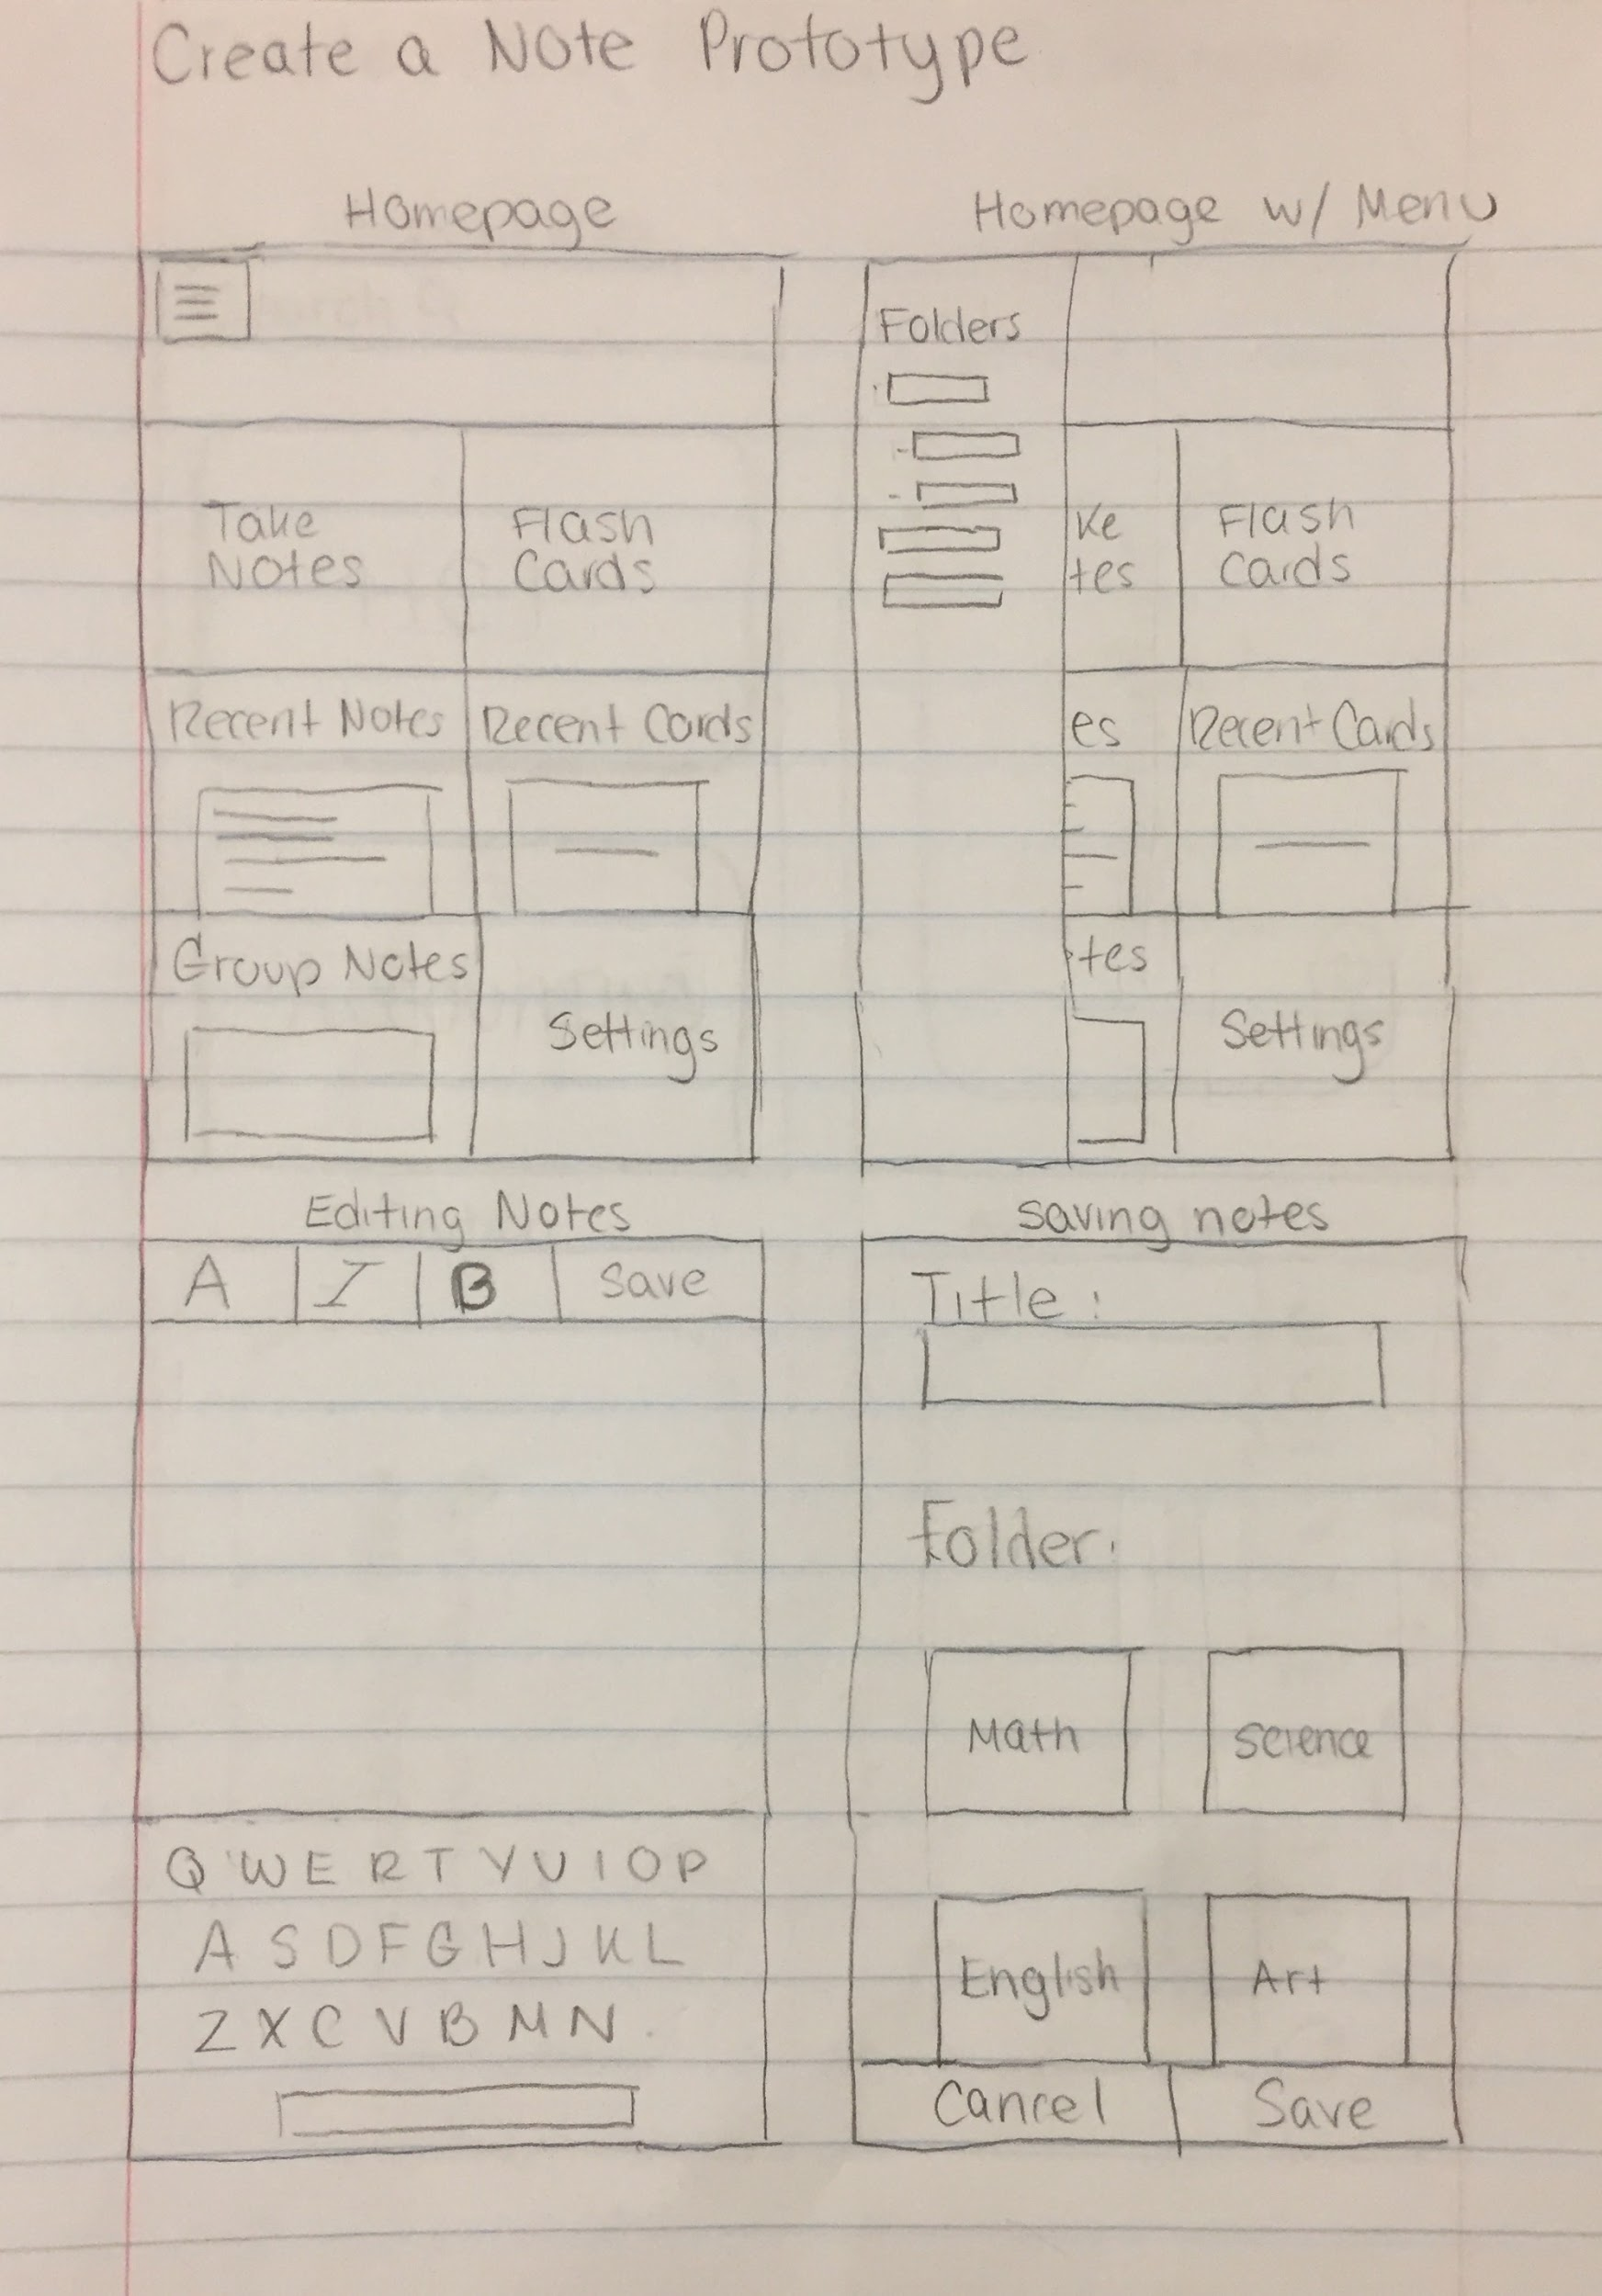 Create a Note Prototype
Homepage
Take
Notes
Flash
Cards
Recent Notes
Recent Cards
Group Notes
Settings
Homepage w/ Menu
Folders
ke
tes
Flash
Cards
es
Recent Cards
tes
Settings
Editing Notes
A I B Save
Q W E R T Y U I O P
A S D F G H J K L
Z X C V B M N
saving notes
Title:
Folder:
Math
Science
English
Art
Cancel
Save